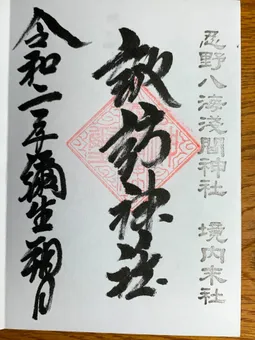 忍野八海浅間神社 境内末社
諏訪神社
令和二年彌生朔日